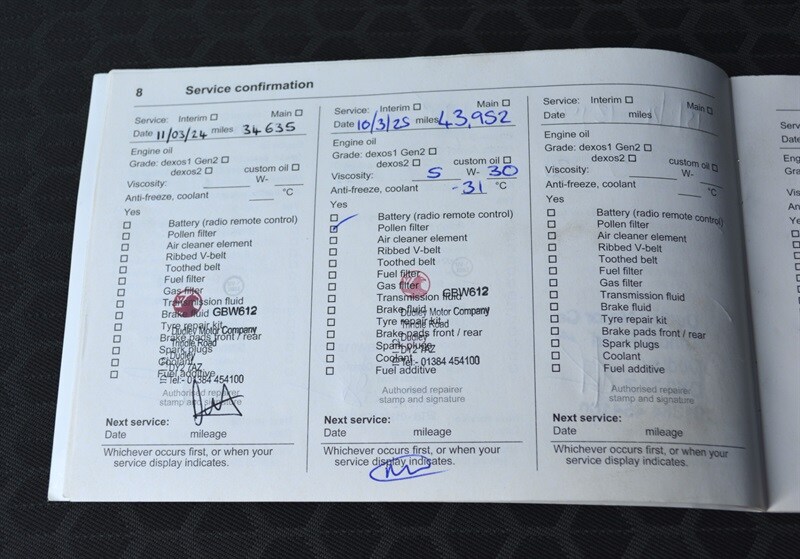 8 Service confirmation
Service: Interim ☐ Main ☐
Date 11/03/24 miles 34635
Engine oil
Grade: dexos1 Gen2 ☐
dexos2 ☐ custom oil ☐
Viscosity: W-
Anti-freeze, coolant °C
Yes
☐ Battery (radio remote control)
☐ Pollen filter
☐ Air cleaner element
☐ Ribbed V-belt
☐ Toothed belt
☐ Fuel filter
☐ Gas filter
☐ Transmission fluid
☐ Brake fluid
☐ Tyre repair kit
☐ Brake pads front / rear
☐ Spark plugs
☐ Coolant
☐ Fuel additive
GBW612
Dudley Motor Company
Trindle Road
Dudley
DY2 7AZ
Tel:- 01384 454100
Authorised repairer
stamp and signature
Next service:
Date mileage
Whichever occurs first, or when your
service display indicates.
Service: Interim ☐ Main ☐
Date 10/3/25 miles 43,952
Engine oil
Grade: dexos1 Gen2 ☐
dexos2 ☐ custom oil ☐
Viscosity: 5 W- 30
Anti-freeze, coolant -31 °C
Yes
☐ Battery (radio remote control)
☑ Pollen filter
☐ Air cleaner element
☐ Ribbed V-belt
☐ Toothed belt
☐ Fuel filter
☐ Gas filter
☐ Transmission fluid
☐ Brake fluid
☐ Tyre repair kit
☐ Brake pads front / rear
☐ Spark plugs
☐ Coolant
☐ Fuel additive
GBW612
Dudley Motor Company
Trindle Road
Dudley
DY2 7AZ
Tel:- 01384 454100
Authorised repairer
stamp and signature
Next service:
Date mileage
Whichever occurs first, or when your
service display indicates.
Service: Interim ☐ Main ☐
Date miles
Engine oil
Grade: dexos1 Gen2 ☐
dexos2 ☐ custom oil ☐
Viscosity: W-
Anti-freeze, coolant °C
Yes
☐ Battery (radio remote control)
☐ Pollen filter
☐ Air cleaner element
☐ Ribbed V-belt
☐ Toothed belt
☐ Fuel filter
☐ Gas filter
☐ Transmission fluid
☐ Brake fluid
☐ Tyre repair kit
☐ Brake pads front / rear
☐ Spark plugs
☐ Coolant
☐ Fuel additive
Authorised repairer
stamp and signature
Next service:
Date mileage
Whichever occurs first, or when your
service display indicates.